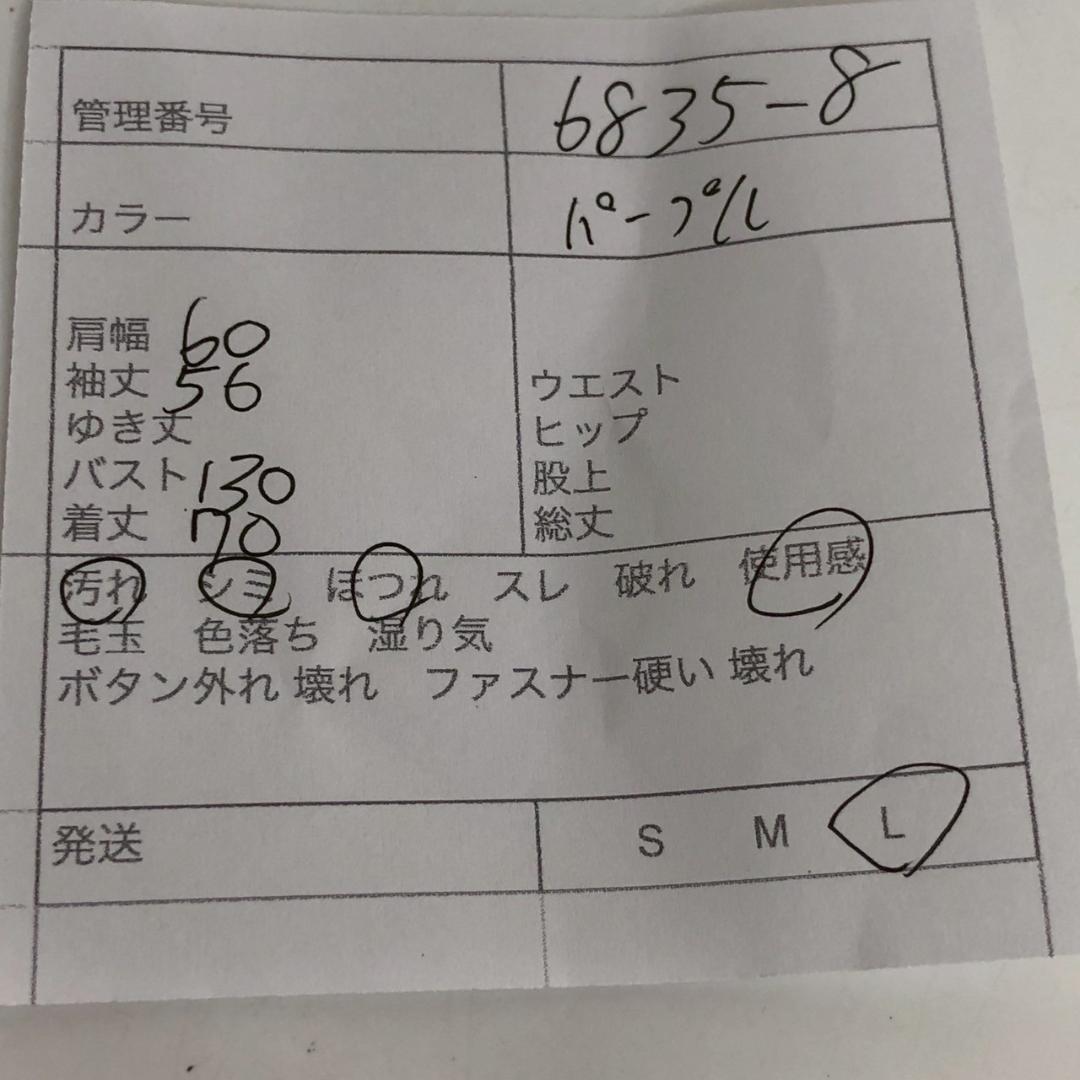 管理番号 6835-8
カラー パープル
肩幅 60
袖丈 56 ウエスト
ゆき丈 ヒップ
バスト 130 股上
着丈 70 総丈
汚れ シミ ほつれ スレ 破れ 使用感
毛玉 色落ち 湿り気
ボタン外れ 壊れ ファスナー硬い 壊れ
発送 S M L